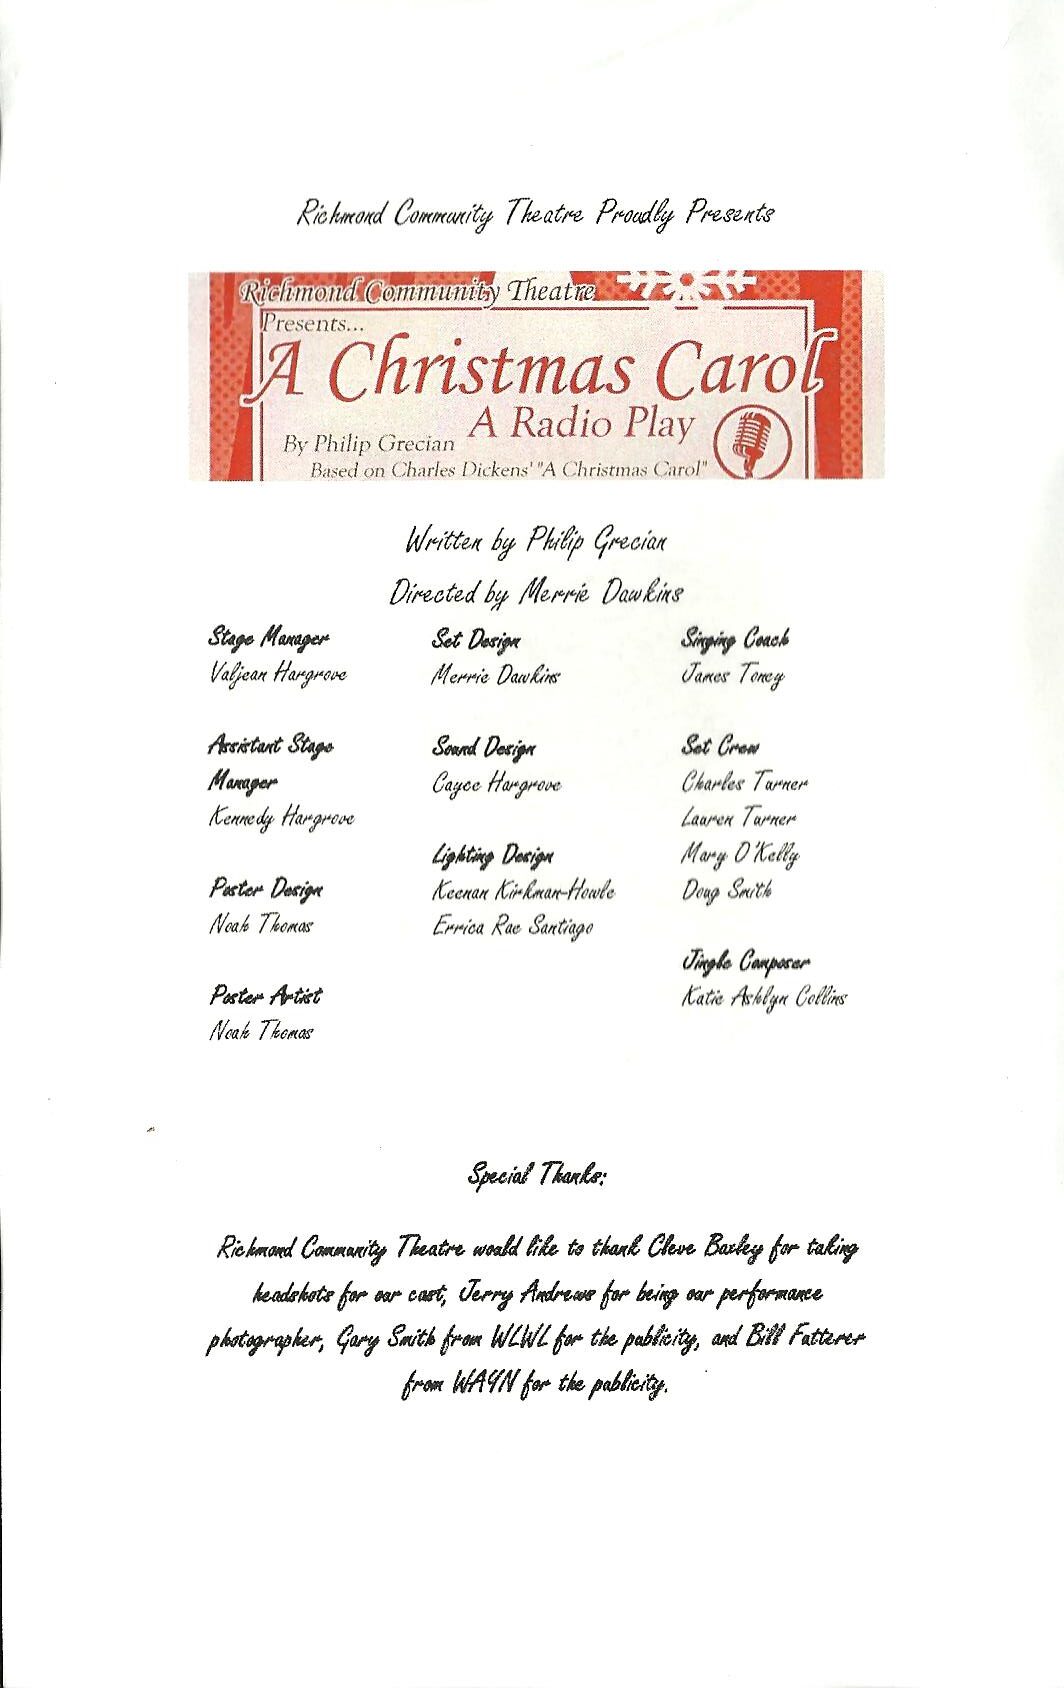 Richmond Community Theatre Proudly Presents
Richmond Community Theatre
Presents...
A Christmas Carol
A Radio Play
By Philip Grecian
Based on Charles Dickens' "A Christmas Carol"
Written by Philip Grecian
Directed by Merrie Dawkins
Stage Manager
Valjean Hargrove
Assistant Stage
Manager
Kennedy Hargrove
Poster Design
Noah Thomas
Poster Artist
Noah Thomas
Set Design
Merrie Dawkins
Sound Design
Cayce Hargrove
Lighting Design
Keenan Kirkman-Howle
Errica Rae Santiago
Singing Coach
James Toney
Set Crew
Charles Turner
Lauren Turner
Mary O'Kelly
Doug Smith
Jingle Composer
Katie Ashlyn Collins
Special Thanks:
Richmond Community Theatre would like to thank Cleve Baxley for taking
headshots for our cast, Jerry Andrews for being our performance
photographer, Gary Smith from WLWL for the publicity, and Bill Futterer
from WAYN for the publicity.